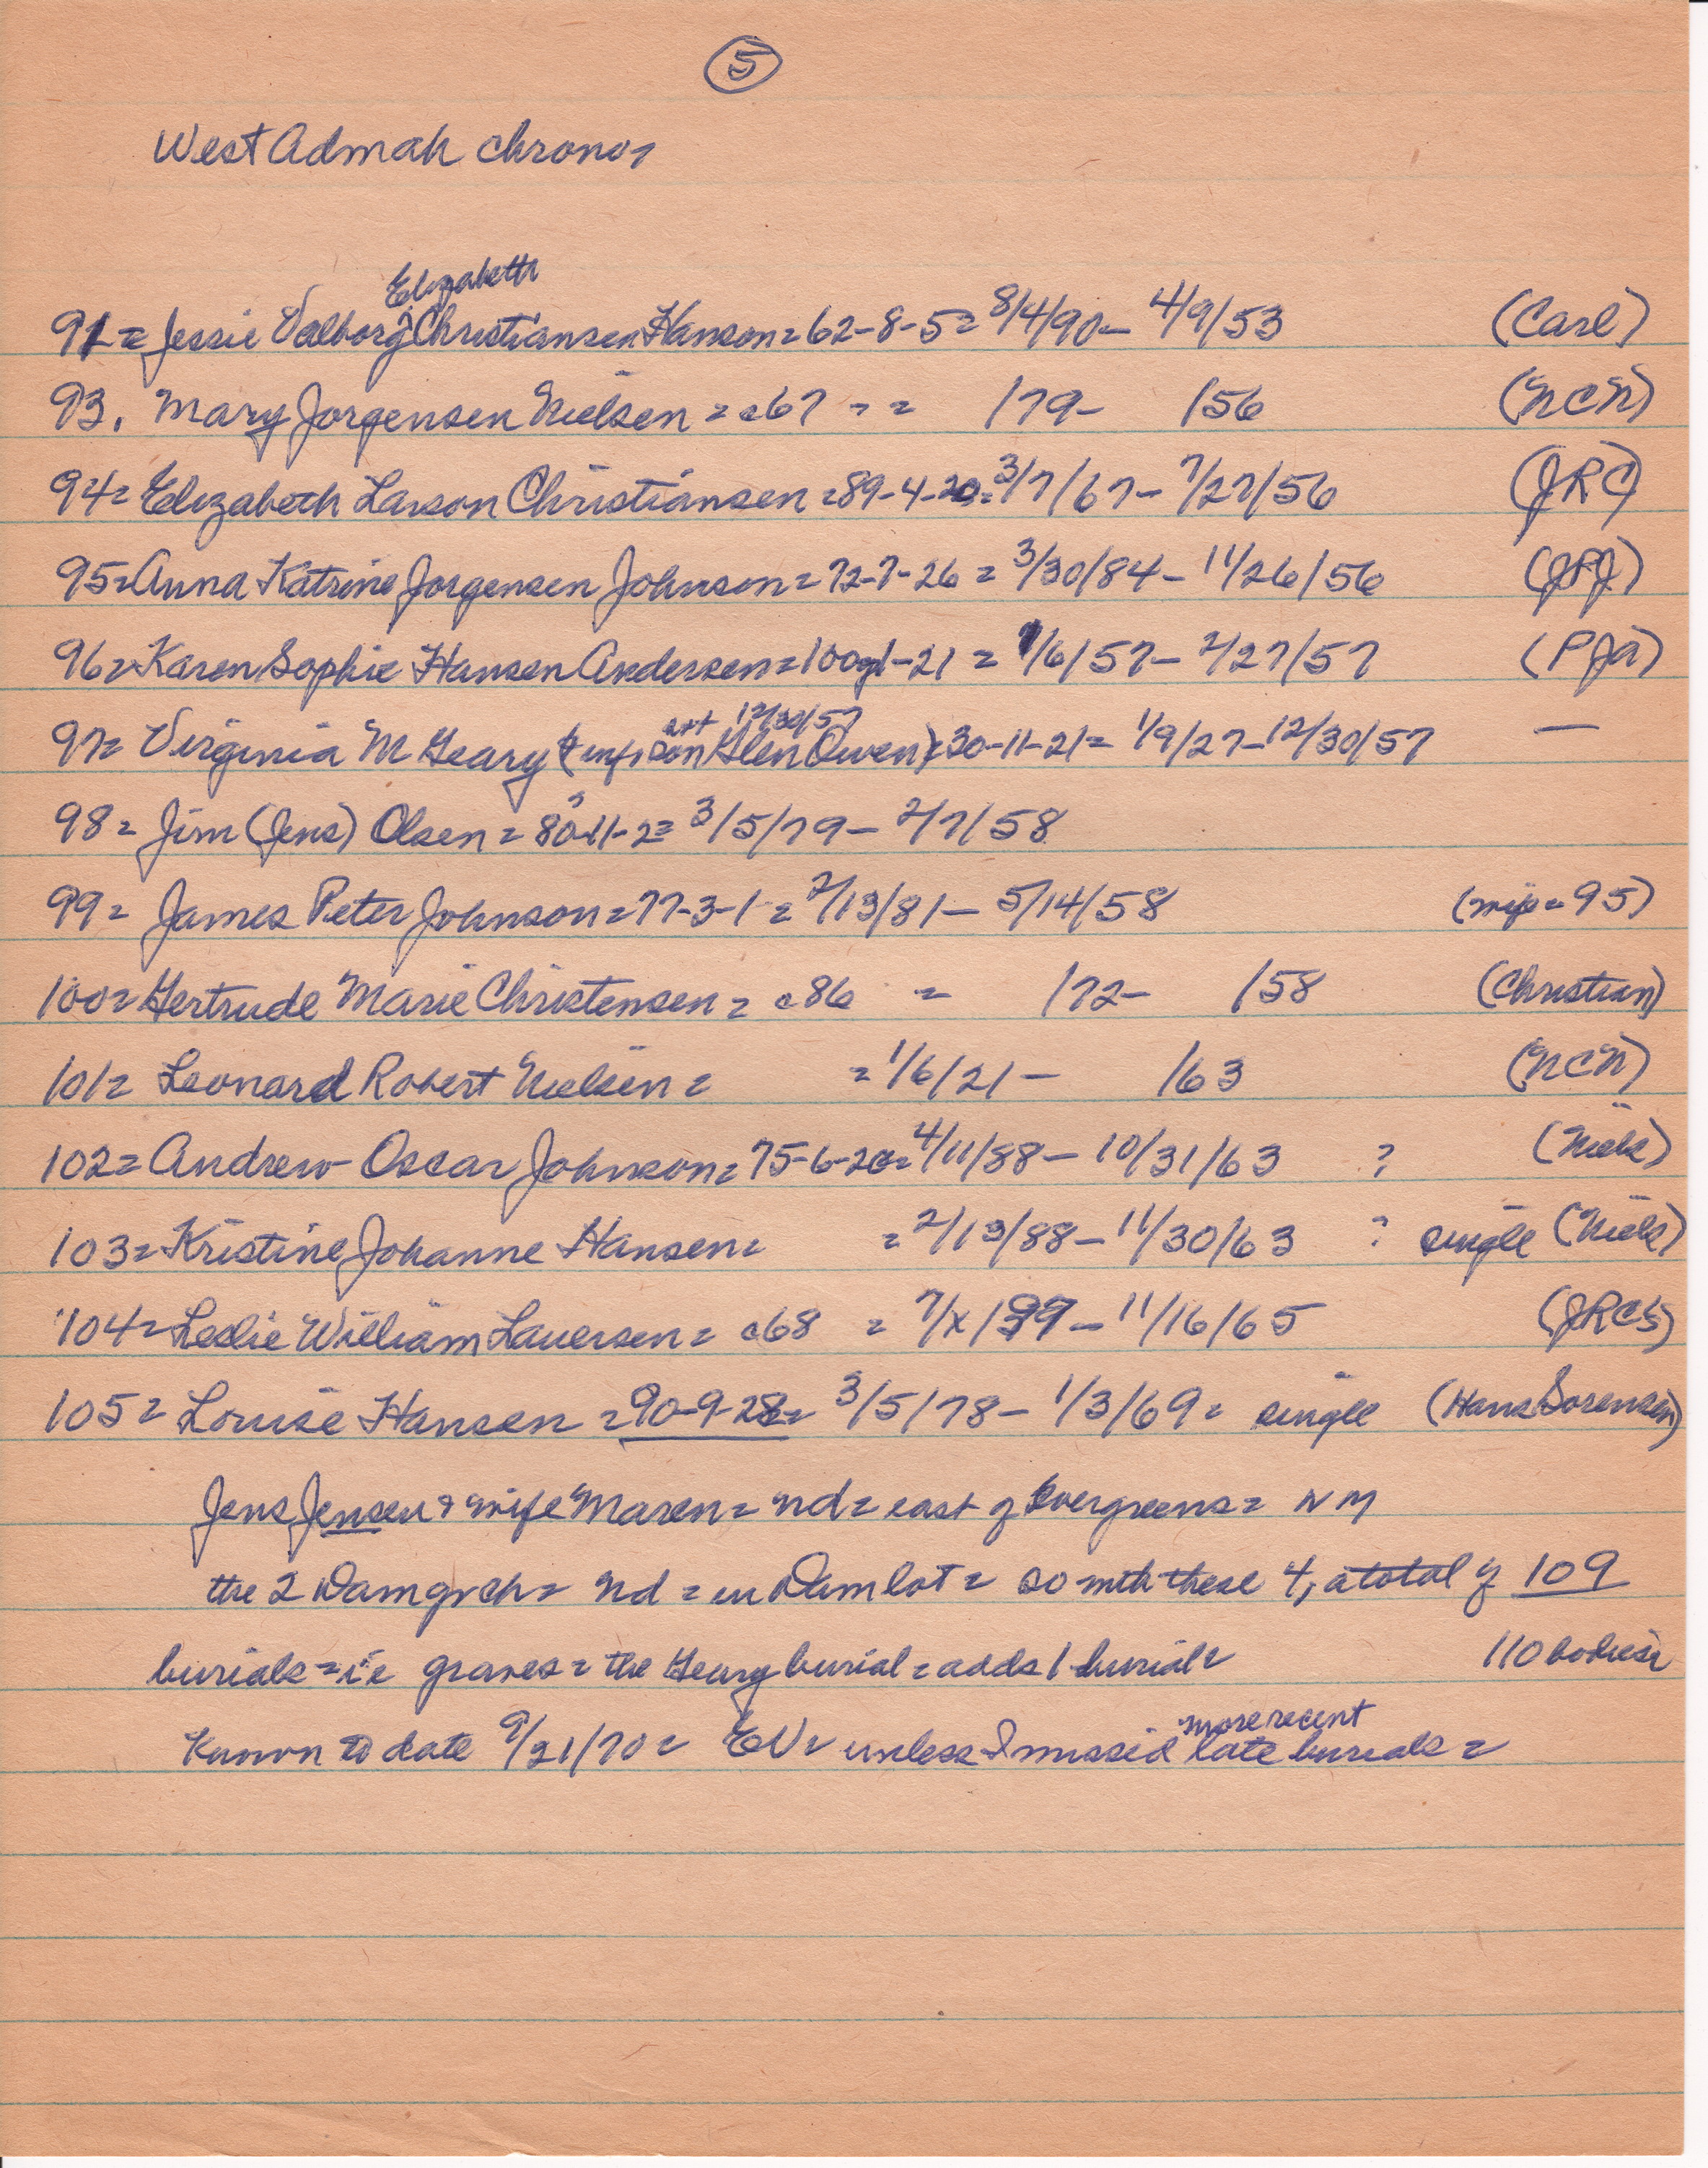 5
West Admah chrono=
Elizabeth
91= Jessie Valborg Christiansen Hanson= 62-8-5= 8/4/90- 4/9/53 (Carl)
93. Mary Jorgensen Nielsen = c67 - = /79- /56 (NCN)
94= Elizabeth Larson Christiansen =89-4-20= 3/7/67- 7/27/56 (JRC)
95= Anna Katrine Jorgensen Johnson= 72-7-26 = 3/30/84- 11/26/56 (JPJ)
96= Karen Sophie Hansen Andersen= 100y1-21 = 1/6/57- 2/27/57 (PJA)
att 12/30/57
97= Virginia M Geary (& inf, son Glen Owen) 30-11-21= 1/9/27-12/30/57 —
98= Jim (Jens) Olsen = 80-11-2= 3/5/79- 2/7/58
99= James Peter Johnson= 77-3-1 = 2/13/81- 5/14/58 (wife=95)
100= Gertrude Marie Christensen = c86 = /72- /58 (Christian)
101= Leonard Robert Nielsen= =1/6/21- /63 (NCN)
102= Andrew Oscar Johnson= 75-6-20= 4/11/88- 10/31/63 ? (Niels)
103= Kristine Johanne Hansen= =2/13/88- 11/30/63 ? single (Niels)
104= Leslie William Lauersen= c68 = 7/x/97- 11/16/65 (JRCs)
105= Louise Hansen =90-9-28= 3/5/78- 1/3/69= single (Hans Sorensen)
Jens Jensen & wife Maren= nd= east of Evergreens= NM
the 2 Damgrch= nd = in Dam lot= so with these 4, a total of 109
burials= i.e graves= the Geary burial= adds 1 burial= 110 bodies=
more recent
Known to date 9/21/70= EV= unless I missed late burials=